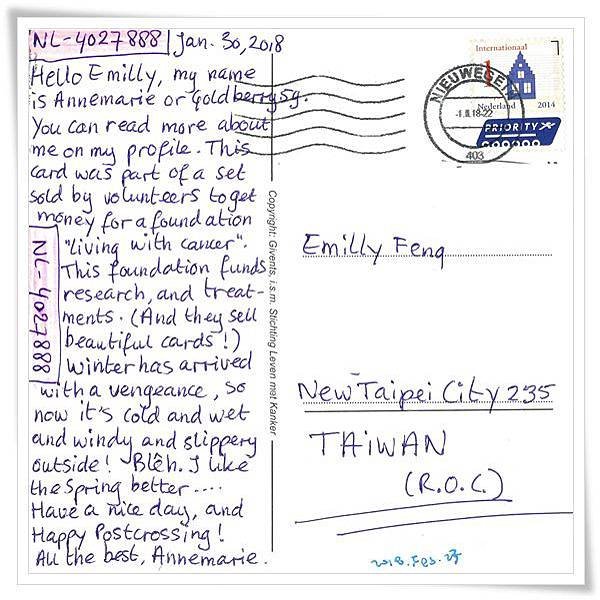 NL-4027888 Jan. 30, 2018
Hello Emilly, my name
is Annemarie or Goldberry59.
You can read more about
me on my profile. This
card was part of a set
sold by volunteers to get
money for a foundation
"living with cancer".
This foundation funds
research, and treat-
ments. (And they sell
beautiful cards!)
Winter has arrived
with a vengeance, so
now it's cold and wet
and windy and slippery
outside! Blêh. I like
the spring better....
Have a nice day, and
Happy Postcrossing!
All the best, Annemarie.
NL-4027888
Copyright: Givents, i.s.m. Stichting Leven met Kanker
Internationaal
1
Nederland 2014
PRIORITY
NIEUWEGEIN
-1.II.18-22
403
Emilly Feng
New Taipei City 235
TAIWAN
(R.O.C.)
2018. Feb. 27